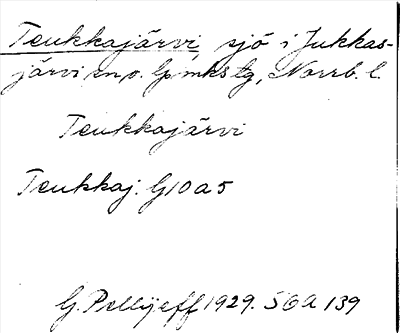 Teukkajärvi sjö i Jukkas-
järvi sn, o. lpmks tg, Norrb. l.
Teukkajärvi
Teukkaj. G10a5
G. Pellijeff 1929. SOA 139